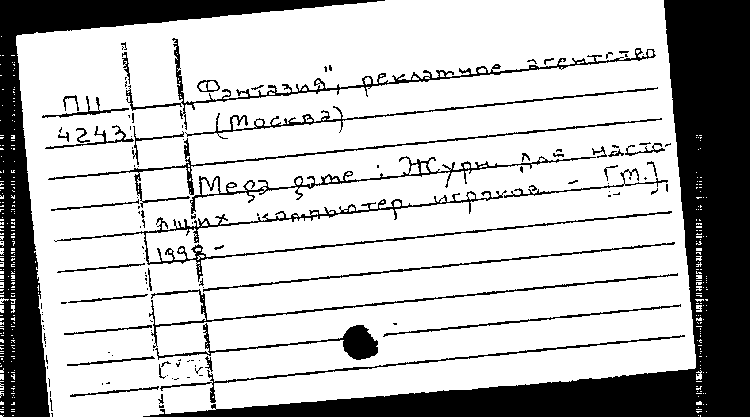 ПЦ „Фантазия", рекламное агентство
4243 (Москва)
Mega game : Журн. для настоя-
ящих компьютер. игроков. - [М.],
1998 -